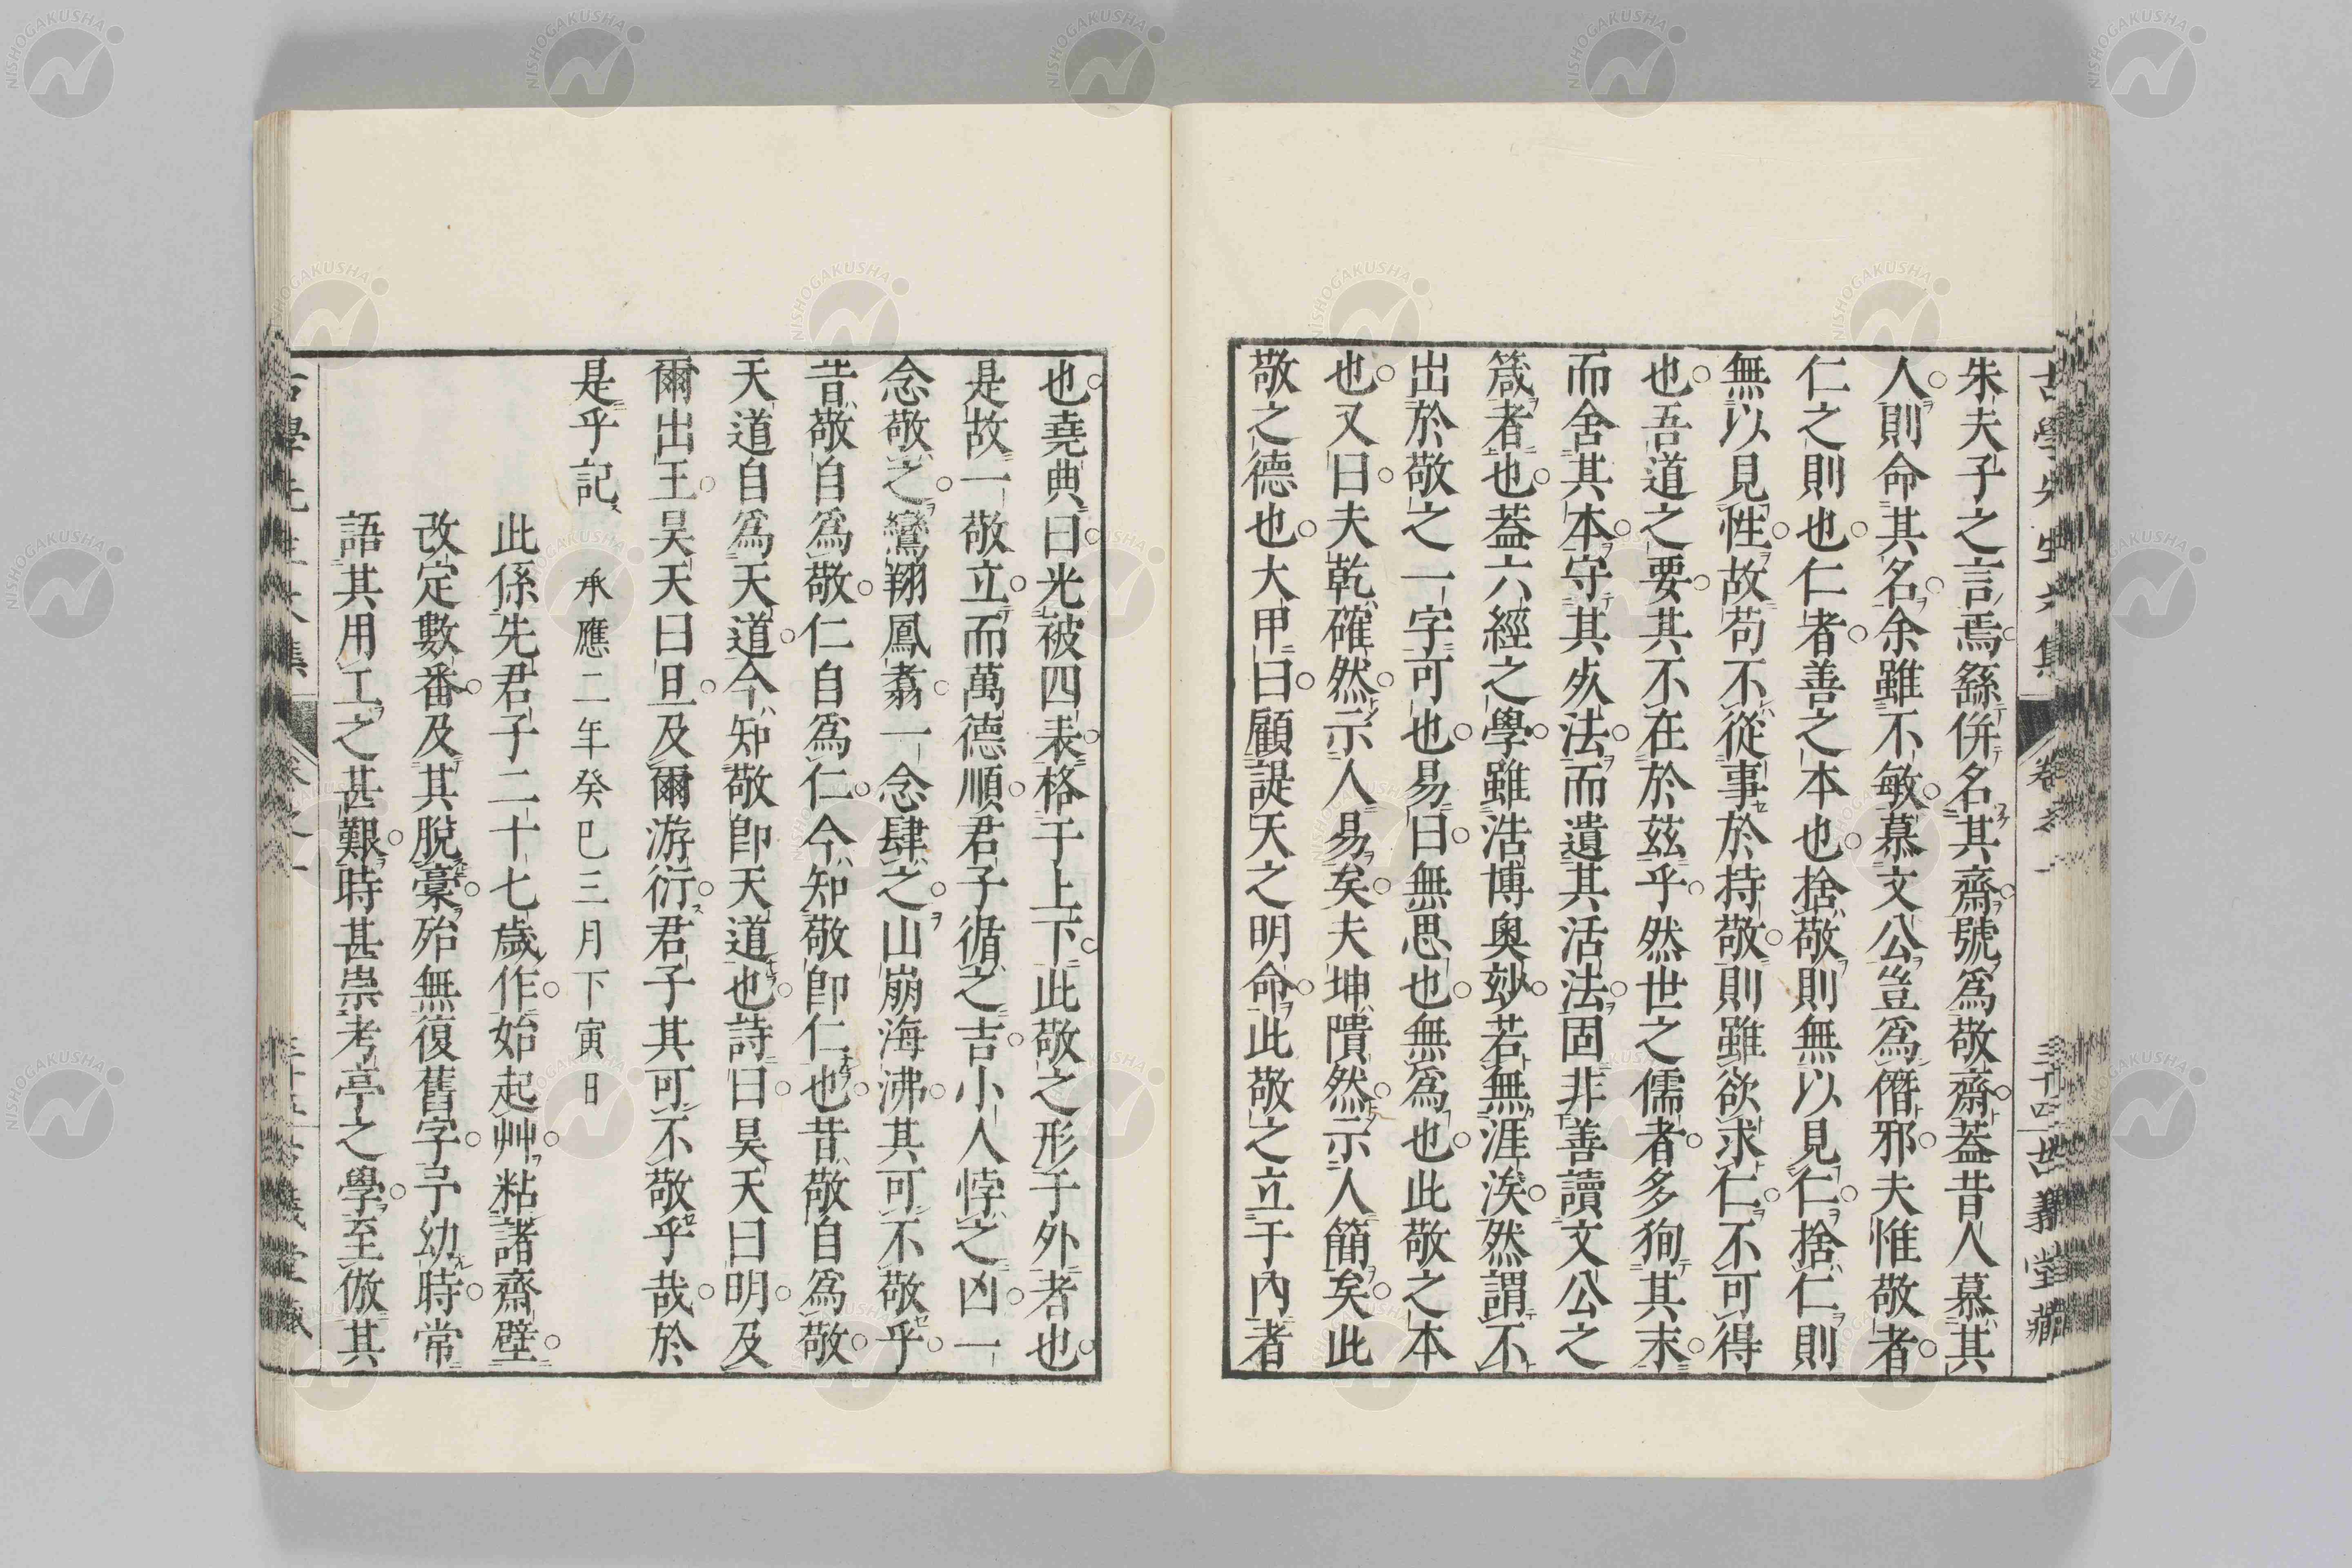 朱夫子之言焉繇併名其齋號爲敬齋葢昔人慕其
人則命其名余雖不敏慕文公豈爲僭邪夫惟敬者
仁之則也仁者善之本也捨敬則無以見仁捨仁則
無以見性故苟不從事於持敬則雖欲求仁不可得
也吾道之要其不在於茲乎然世之儒者多狥其末
而舍其本守其死法而遺其活法固非善讀文公之
箴者也葢六經之學雖浩博奥玅若無涯涘然謂不
出於敬之一字可也易曰無思也無爲也此敬之本
也又曰夫乾確然示人易矣夫坤隤然示人簡矣此
敬之德也大甲曰顧諟天之明命此敬之立于內者
也堯典曰光被四表格于上下此敬之形于外者也
是故一敬立而萬德順君子循之吉小人悖之凶一
念敬之鸞翔鳳翥一念肆之山崩海沸其可不敬乎
昔敬自爲敬仁自爲仁今知敬卽仁也昔敬自爲敬
天道自爲天道今知敬卽天道也詩曰昊天曰明及
爾出王昊天曰旦及爾游衍君子其可不敬乎哉於
是乎記 承應二年癸巳三月下寅日
此係先君子二十七歲作始起艸粘諸齋壁
改定數番及其脫稾殆無復舊字予幼時常
語其用工之甚艱時甚崇考亭之學至倣其